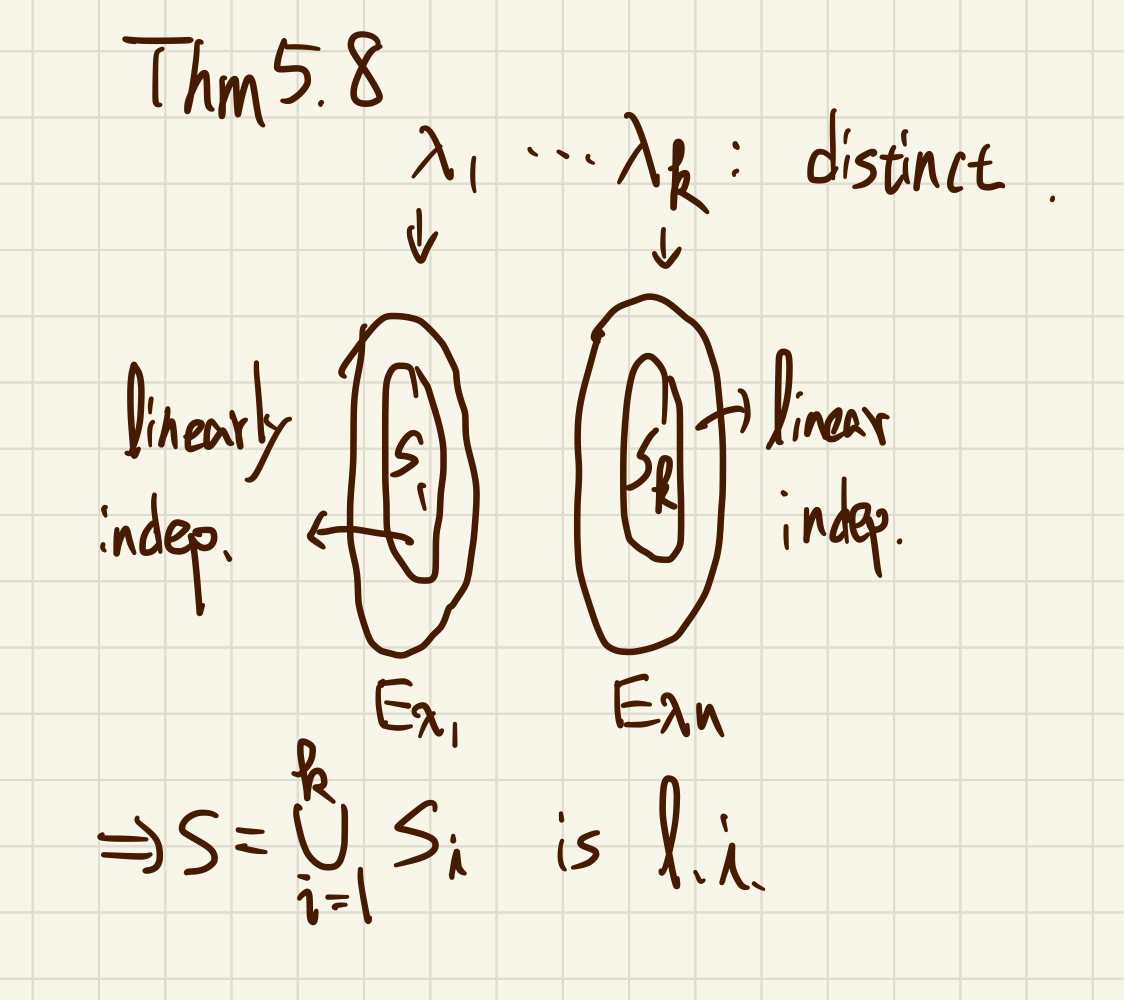 Thm 5.8
λ₁ ... λₖ : distinct.
↓ ↓
linearly indep. ← Sᵢ
Sₖ → linear indep.
E_λ₁ E_λn
⇒ S = ∪ᵢ₌₁ᵏ Sᵢ is l.i.